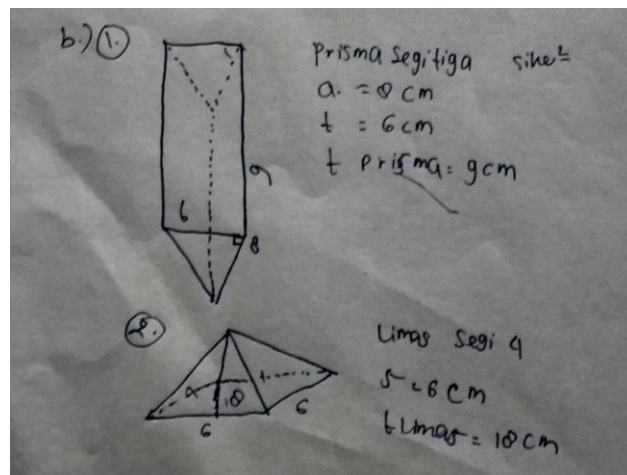 b.) 1.
Prisma segitiga siku²
a. = 8 cm
t = 6 cm
t prisma = 9 cm
9
6
8
2.
Limas segi 4
s = 6 cm
t Limas = 18 cm
t
18
6
6